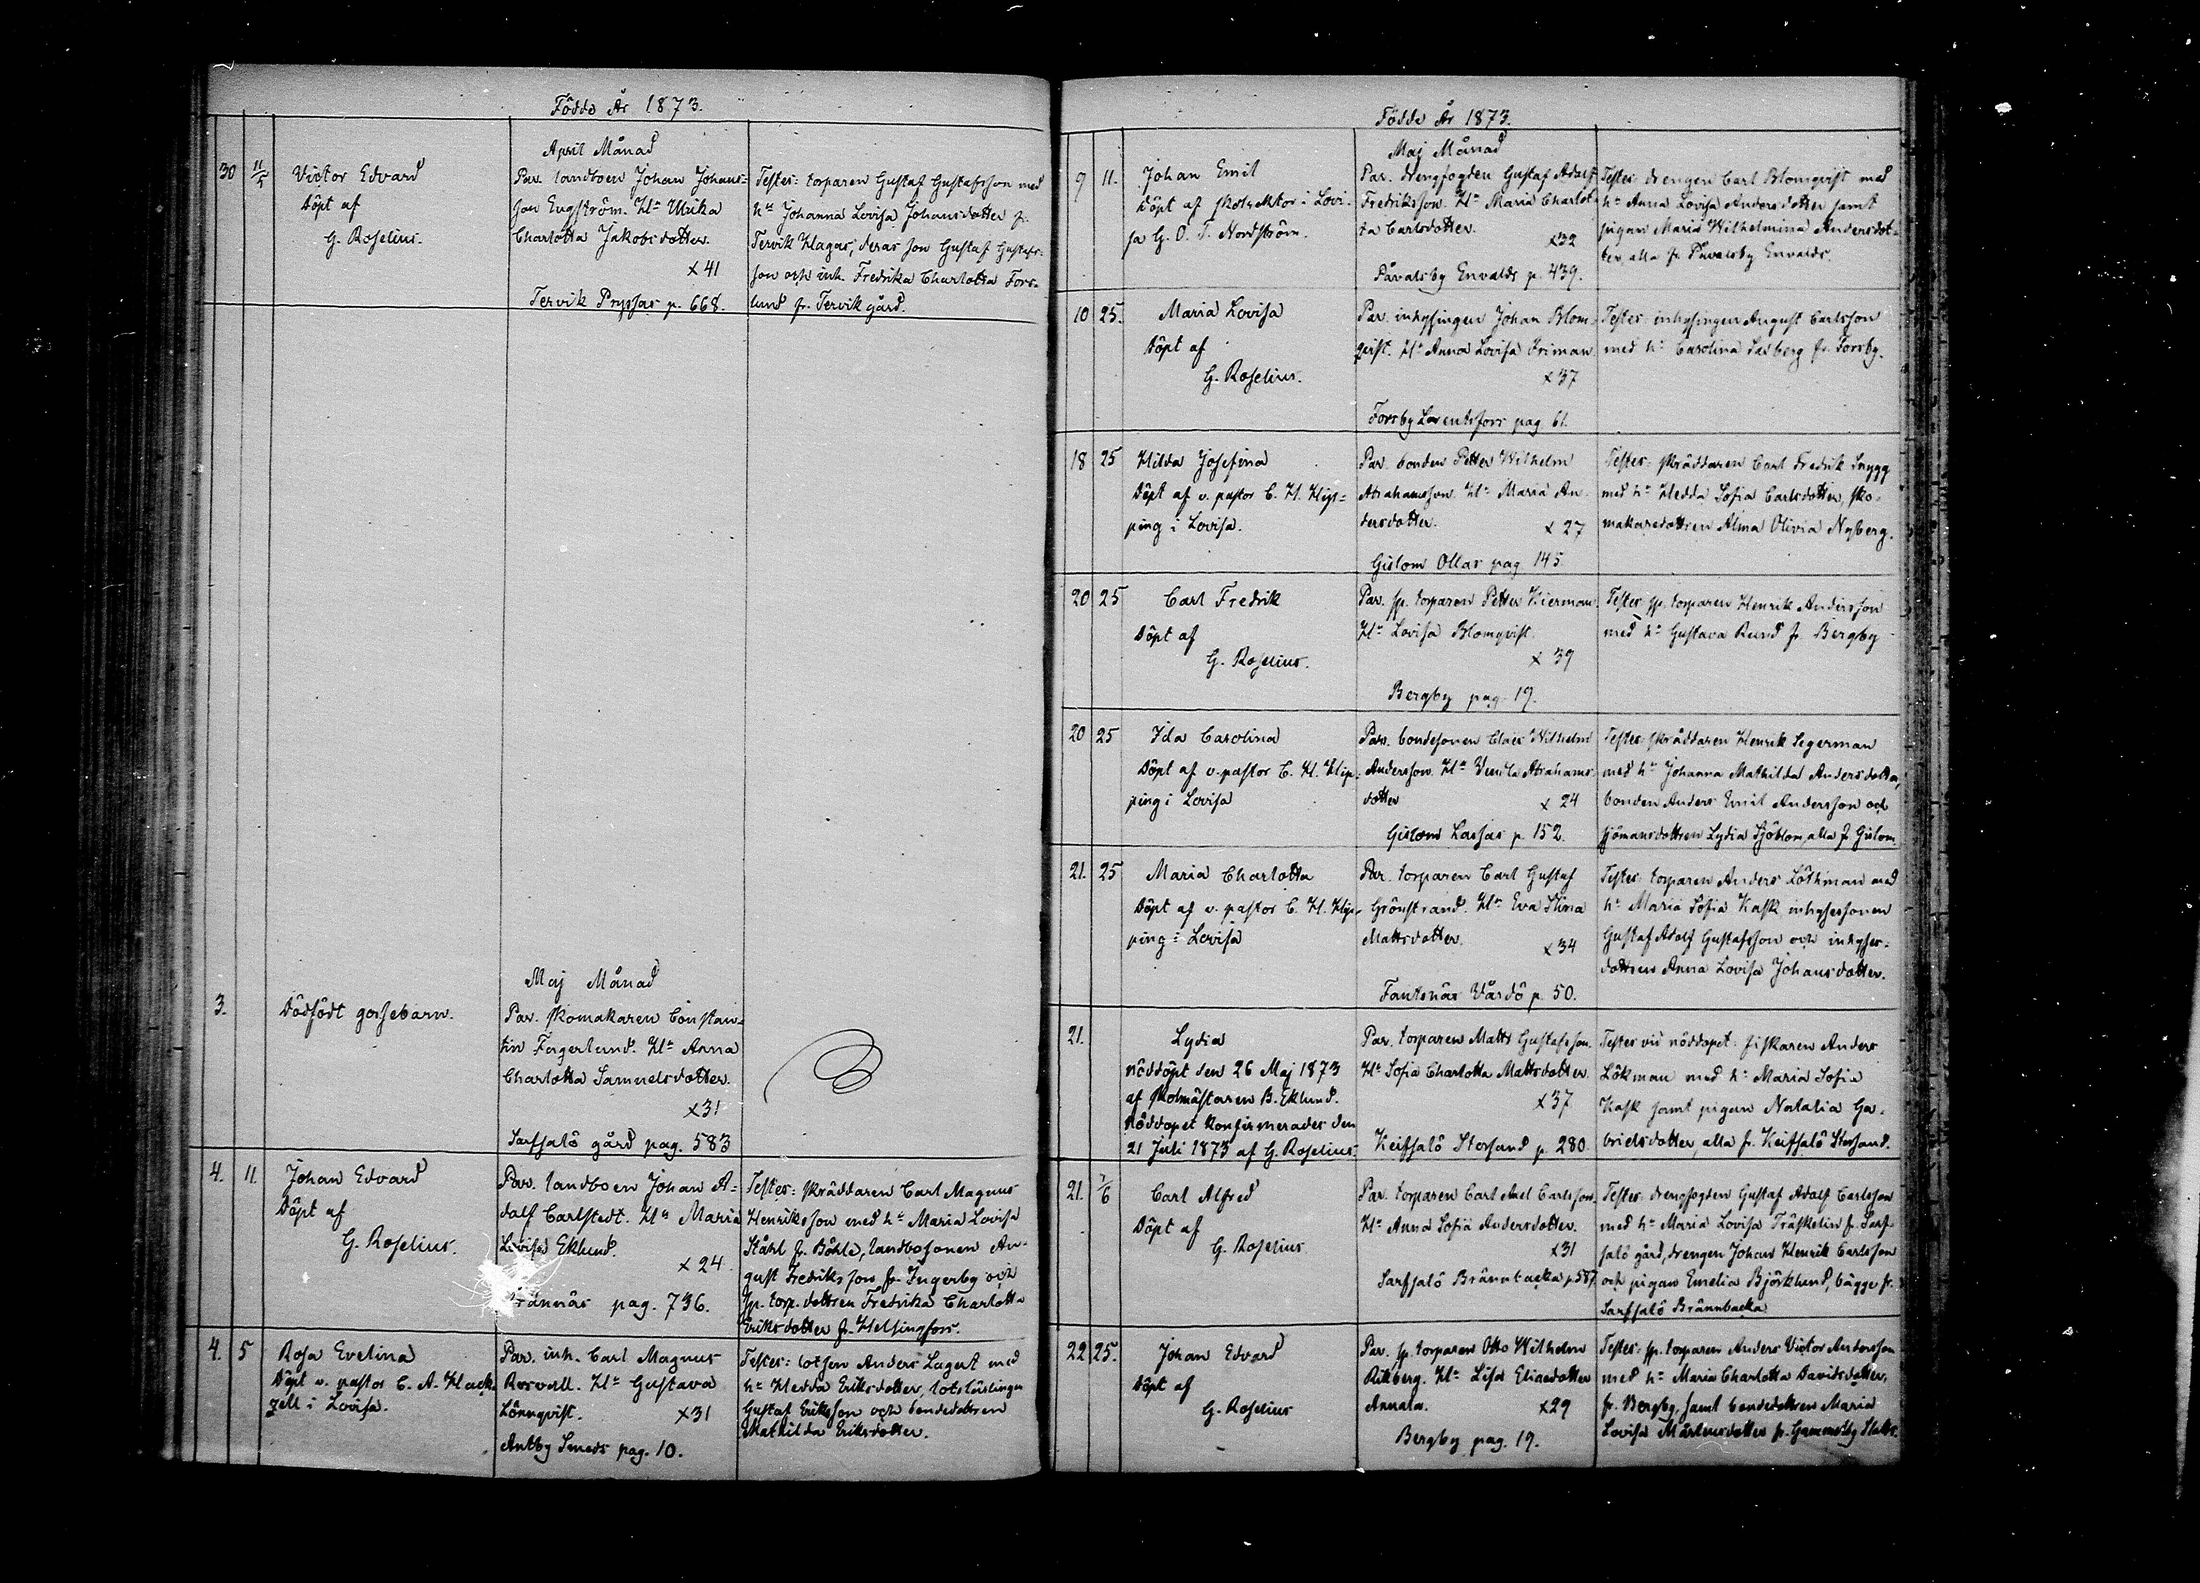 Födde År 1873.
April Månad
30 11/5 Victor Edvard
Döpt af
G. Roselius.
Par. landboen Johan Johans=
son Engström. H:u Ulrika
Charlotta Jakobsdotter.
x 41
Tervik Pryssas p. 668.
Testes: torparen Gustaf Gustafsson med
h:u Johanna Lovisa Johansdotter fr.
Tervik Klagas, deras son Gustaf Gustafs-
son och inh. Fredrika Charlotta Fors-
lund fr. Tervik gård.
Maj Månad
3. Dödfödt gossebarn.
Par. skomakaren Constan-
tin Fagerlund. H:u Anna
Charlotta Samuelsdotter.
x31
Sarfsalö gård pag. 583
4. 11. Johan Edvard
Döpt af
G. Roselius.
Par. landboen Johan A=
dolf Carlstedt. H:u Maria
Lovisa Eklund.
x 24.
pag. 736.
Testes: skräddaren Carl Magnus
Henriksson med h:u Maria Lovisa
Ståhl fr. Böhle, landbosonen Au-
gust Fredriksson fr. Ingerby och
sp. torp. dottren Fredrika Charlotta
Eriksdotter fr. Helsingfors.
4. 5 Rosa Evelina
Döpt v. pastor C. A. Hack-
zell i Lovisa.
Par. inh. Carl Magnus
Rosvall. H:u Gustava
Lönnqvist. x31
Antby Smeds pag. 10.
Testes: lotsen Anders Lagert med
h:u Hedda Eriksdotter, lotslärlingen
Gustaf Eriksson och bondedottren
Mathilda Eriksdotter.
Födde År 1873.
Maj Månad
9 11. Johan Emil
Döpt af skolrektor i Lovi-
sa G. O. T. Nordström.
Par. drengfogden Gustaf Adolf
Fredriksson. H:u Maria Charlot-
ta Carlsdotter.
x32
Påvalsby Envalds p. 439.
Testes: drengen Carl Blomqvist med
h:u Anna Lovisa Andersdotter samt
pigan Maria Wilhelmina Andersdot-
ter, alla fr. Påvalsby Envalds.
10 25. Maria Lovisa
Döpt af
G. Roselius.
Par. inhysingen Johan Blom-
qvist. H:u Anna Lovisa Friman
x37
Forsby Larentsfors pag 61.
Testes: inhysingen August Carlsson
med h:u Carolina Saxberg fr. Forsby.
18 25 Hilda Josefina
Döpt af v. pastor C. H. Klip=
ping i Lovisa.
Par. bonden Petter Wilhelm
Abrahamsson. H:u Maria An-
dersdotter.
x 27
Gislom Ollas pag 145
Testes: skräddaren Carl Fredrik Snygg
med h:u Hedda Sofia Carlsdotter, sko-
makaredottren Alma Olivia Nyberg.
20 25 Carl Fredrik
Döpt af
G. Roselius.
Par. sp. torparen Petter Kiermon.
H:u Lovisa Blomqvist.
x 39
Bergby pag. 19.
Testes: sp. torparen Henrik Andersson
med h:u Gustava Rund fr. Bergby
20 25 Ida Carolina
Döpt af v. pastor C. H. Klip-
ping i Lovisa
Par. bondesonen Claes Wilhelm
Andersson. H:u Vendla Abrahams-
dotter
x 24
Gislom Lassas p. 152.
Testes: skräddaren Henrik Segerman
med h:u Johanna Mathilda Andersdotter,
bonden Anders Emil Andersson och
sjömansdottren Lydia Sjöblom, alla fr. Gislom.
21. 25 Maria Charlotta
Döpt af v. pastor C. H. Klip-
ping i Lovisa
Par. torparen Carl Gustaf
Grönstrand. H:u Eva Stina
Mattsdotter.
x34
Fantsnäs Vårdö p. 50.
Testes: torparen Anders Löthman med
h:u Maria Sofia Kask, inhysessonen
Gustaf Adolf Gustafsson och inhyses-
dottren Anna Lovisa Johansdotter.
21. Lydia
nöddöpt den 26 Maj 1873
af skolmästaren B. Eklund.
Nöddopet konfirmerades den
21 Juli 1873 af G. Roselius.
Par. torparen Matts Gustafsson.
H:u Sofia Charlotta Mattsdotter.
x37
Keifsalö Storsand p. 280.
Testes vid nöddopet: fiskaren Anders
Lökman med h:u Maria Sofia
Kask samt pigan Natalia Ga-
brielsdotter, alla fr. Keifsalö Storsand.
21. 7/6 Carl Alfred
Döpt af
G. Roselius
Par. torparen Carl Axel Carlsson.
H:u Anna Sofia Andersdotter.
x31
Sarfsalö Brännbacka p. 587
Testes: drengfogden Gustaf Adolf Carlsson
med h:u Maria Lovisa Träskelin fr. Sarf-
salö gård, drengen Johan Henrik Carlsson
och pigan Emelia Björklund, bägge fr.
Sarfsalö Brännbacka
22 25. Johan Edvard
Döpt af
G. Roselius
Par. sp. torparen Otto Wilhelm
Rikberg. H:u Lisa Eliaedotter
Annala. x29
Bergby pag. 19.
Testes: sp. torparen Anders Victor Andersson
med h:u Maria Charlotta Davidsdotter,
fr. Bergby, samt bondedottren Maria
Lovisa Mårtensdotter fr. Gammelby